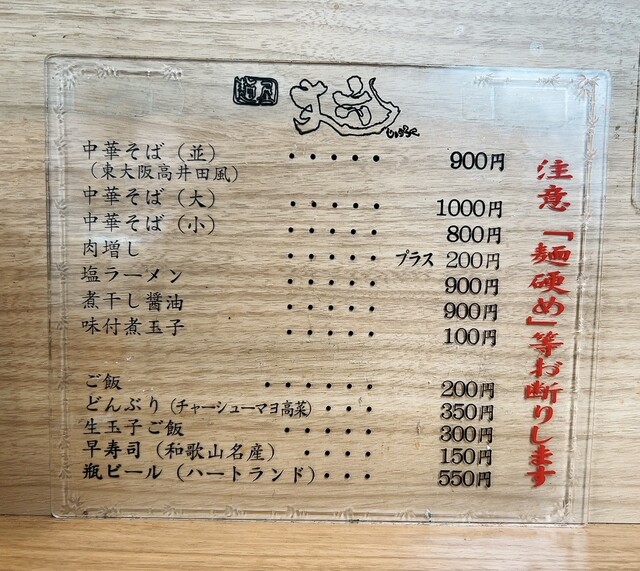 麺屋
中華そば（並）・・・・・900円
（東大阪高井田風）
中華そば（大）・・・・・1000円
中華そば（小）・・・・・800円
肉増し・・・・・プラス 200円
塩ラーメン・・・・・900円
煮干し醤油・・・・・900円
味付煮玉子・・・・・100円
ご飯・・・・・・200円
どんぶり（チャーシューマヨ高菜）・・・350円
生玉子ご飯・・・・・300円
早寿司（和歌山名産）・・・・150円
瓶ビール（ハートランド）・・・・550円
注意「麺硬め」等お断りします